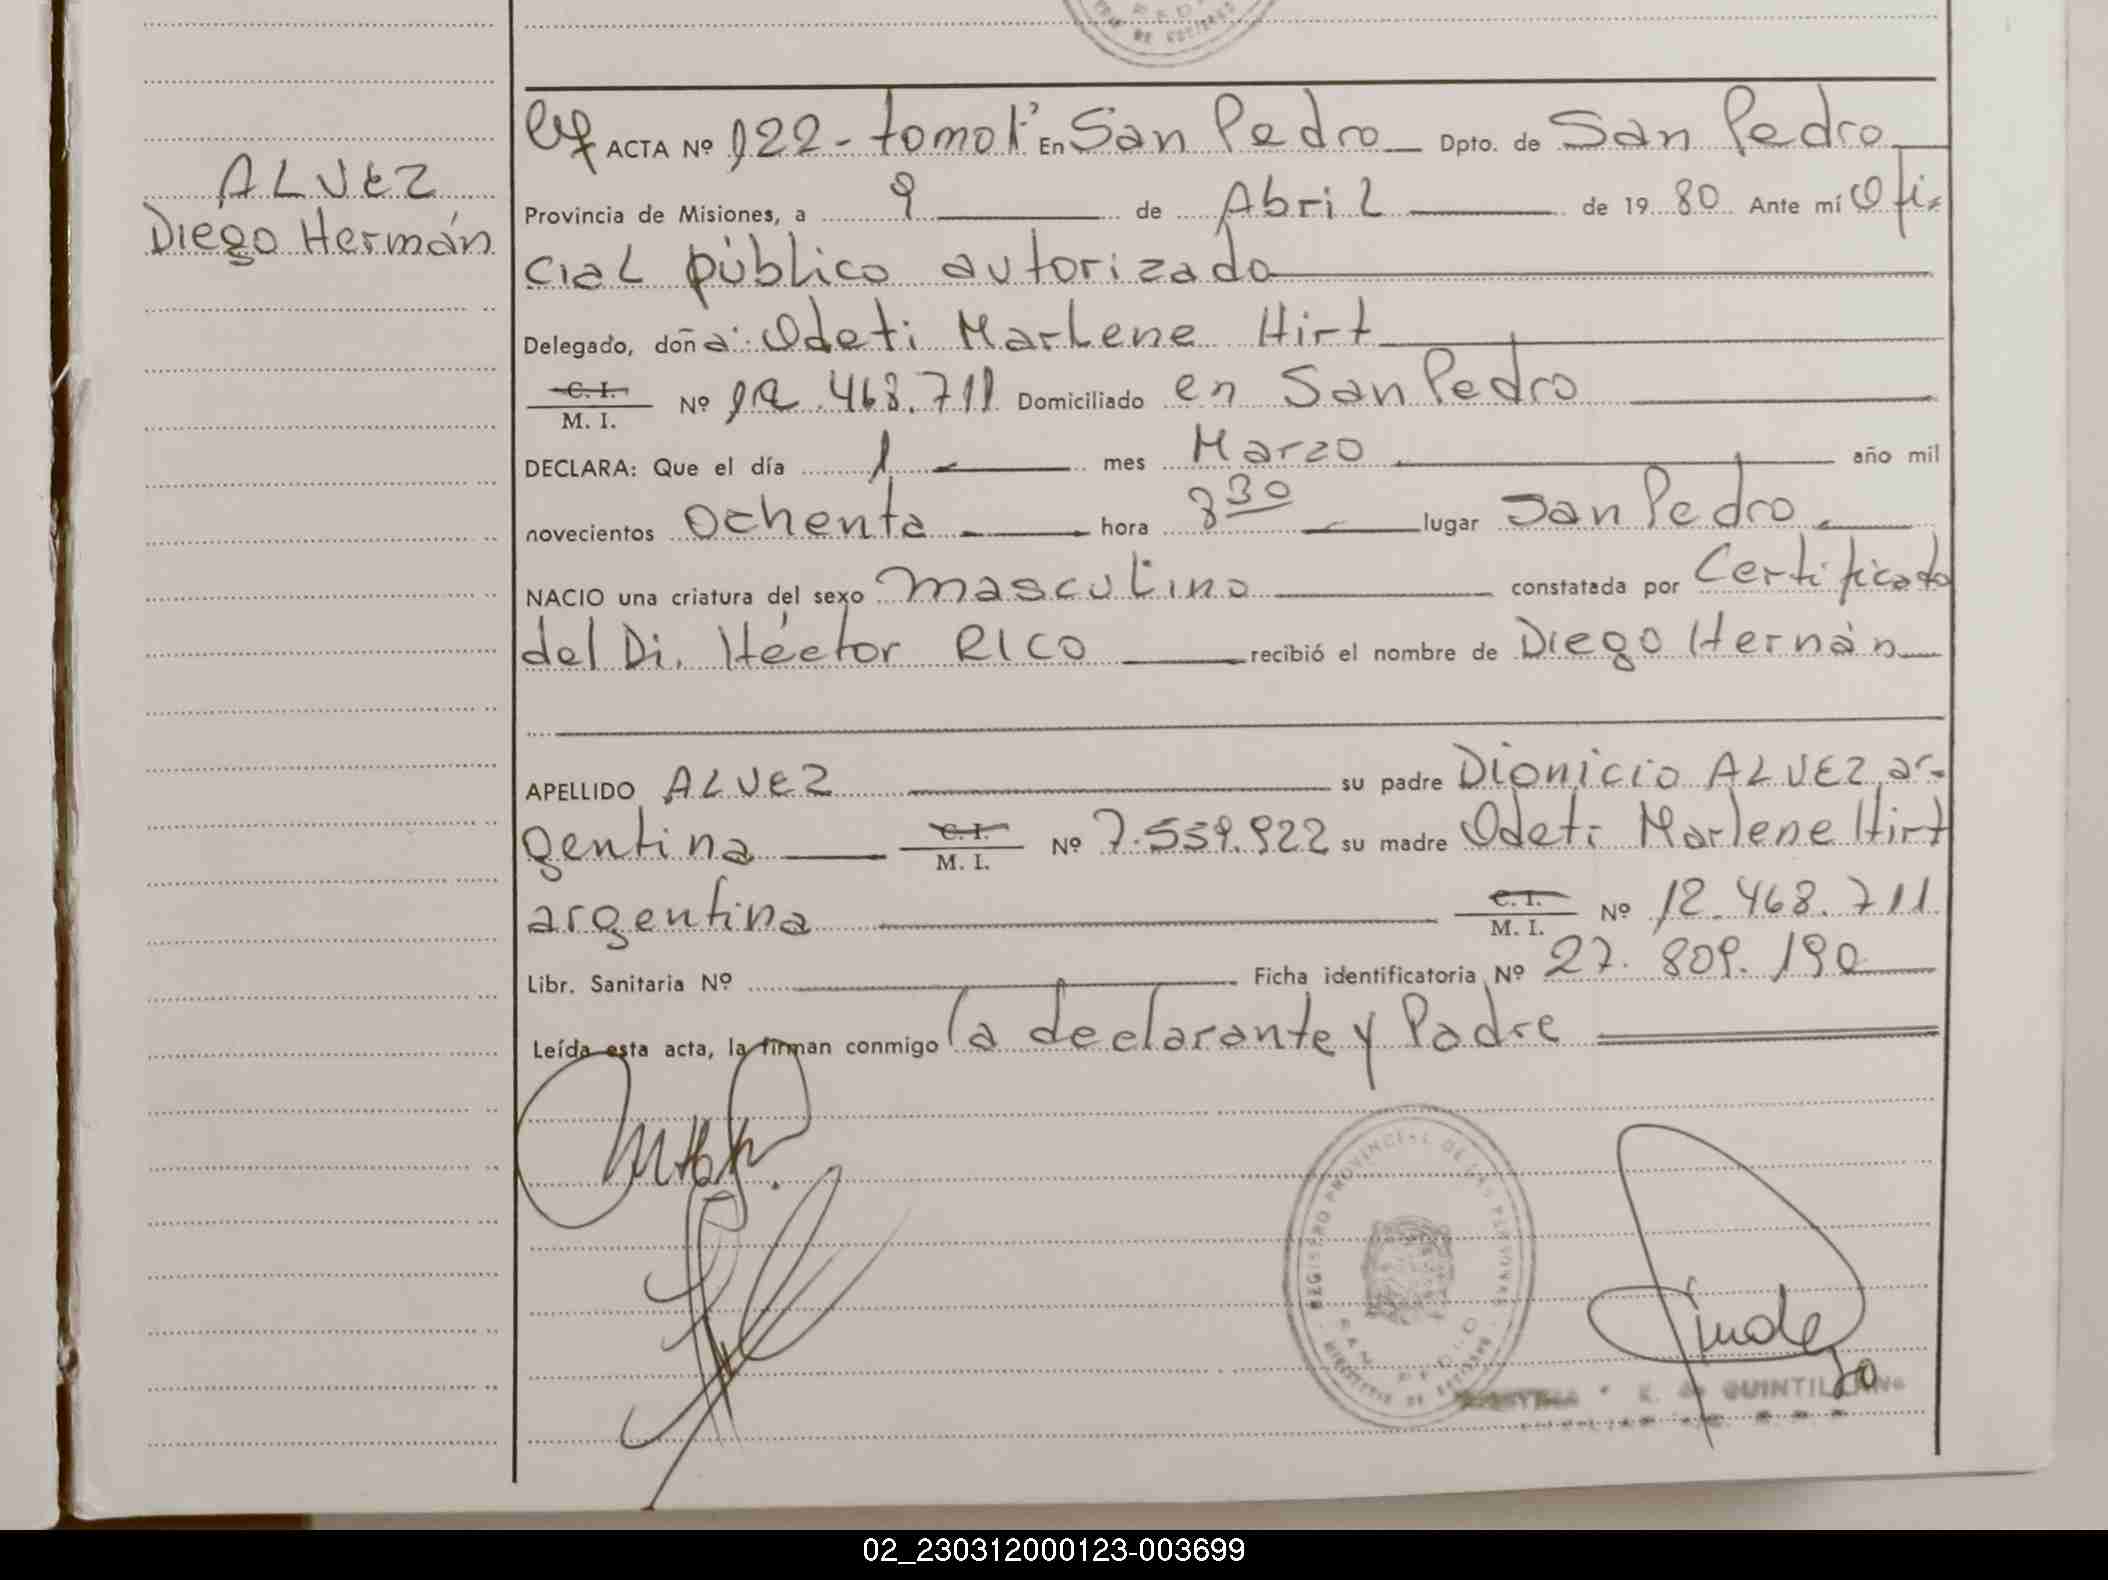 ALVEZ
Diego Hermán
ACTA Nº 122 - tomo 1º En San Pedro Dpto. de San Pedro
Provincia de Misiones, a 9 de Abril de 1980 Ante mí Ofi-
cial público autorizado
Delegado, doña: Odeti Marlene Hirt
C. I.
M. I. Nº 12.468.711 Domiciliado en San Pedro
DECLARA: Que el día 1 mes Marzo año mil
novecientos ochenta hora 8 30 lugar San Pedro
NACIO una criatura del sexo masculino constatada por Certificado
del Dr. Héctor RICO recibió el nombre de Diego Hernán
APELLIDO ALVEZ su padre Dionicio ALVEZ ar-
gentina C. I. M. I. Nº 7.559.922 su madre Odeti Marlene Hirt
argentina C. I. M. I. Nº 12.468.711
Libr. Sanitaria Nº Ficha identificatoria Nº 27.809.190
Leída esta acta, la firman conmigo la declarante y Padre
REGISTRO PROVINCIAL DE LAS PERSONAS
SAN PEDRO
K. de QUINTILIANO
02_230312000123-003699